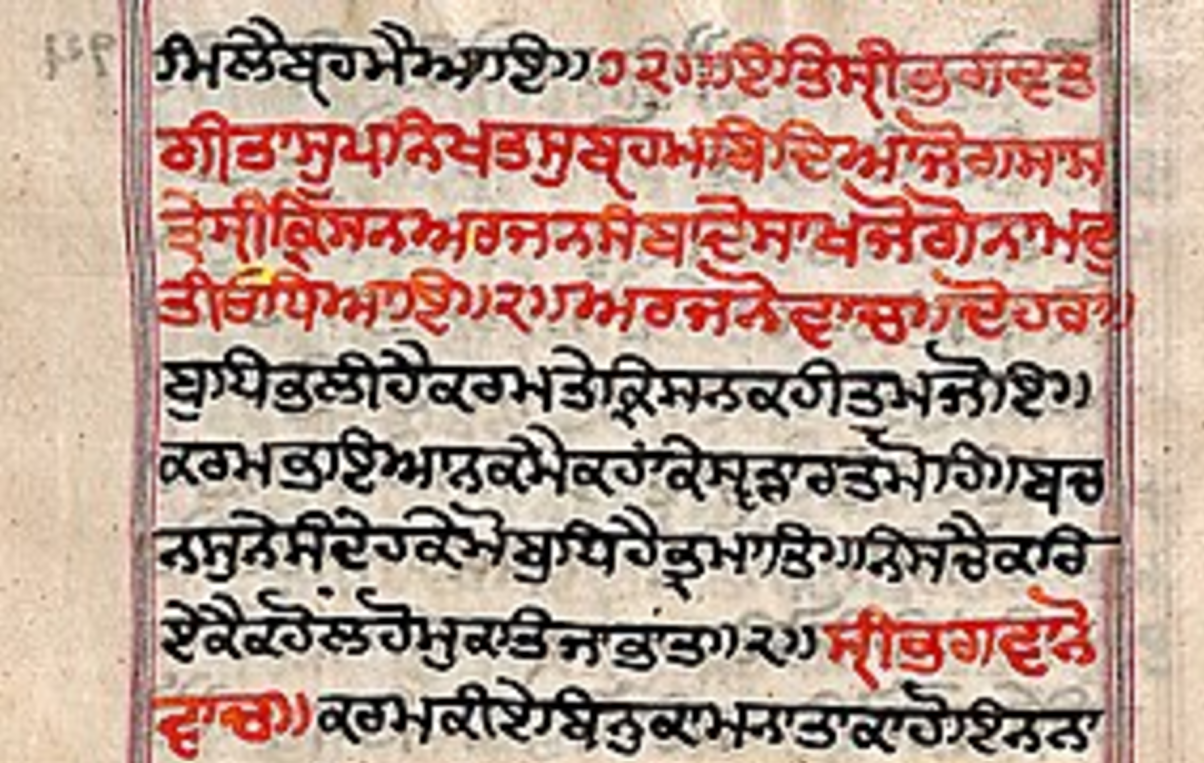 ਮਿਲੈਬ੍ਰਹਮੈਆਇ॥੭੨॥ਇਤਿਸ੍ਰੀਭਗਵਤ
ਗੀਤਾਸੁਪਨਿਖਤਸੁਬ੍ਰਹਮਬਿਦਿਆਜੋਗਸਾਸ
ਤ੍ਰੇਸ੍ਰੀਕ੍ਰਿਸਨਅਰਜਨਸੰਬਾਦੇਸਾਖਜੋਗੋਨਾਮਦੁ
ਤੀਓਧਿਆਇ॥੨॥ਅਰਜਨੋਵਾਚ॥ਦੋਹਰਾ॥
ਬੁਧਿਭਲੀਹੈਕਰਮਤੇਕ੍ਰਿਸਨਕਹੀਤੁਮਜੋਇ॥
ਕਰਮਭਇਆਨਕਮੈਕਹਾਂਕੇਸ੍ਵਡਾਰਤਮੋਹਿ॥ਬਚ
ਨਸੁਨੇਸੰਦੇਹਕੇਮੋਬੁਧਿਹੈਭ੍ਰਮਾਤਿ॥ਨਿਸਚੈਕਰਿ
ਏਕੈਕਹੋਲਹੋਮੁਕਤਿਜਾਭਾਤ॥੨॥ਸ੍ਰੀਭਗਵਾਨੋ
ਵਾਚ॥ਕਰਮਕੀਏਬਿਨੁਕਾਮਨਾਤਾਕਾਹੋਇਨਨਾ